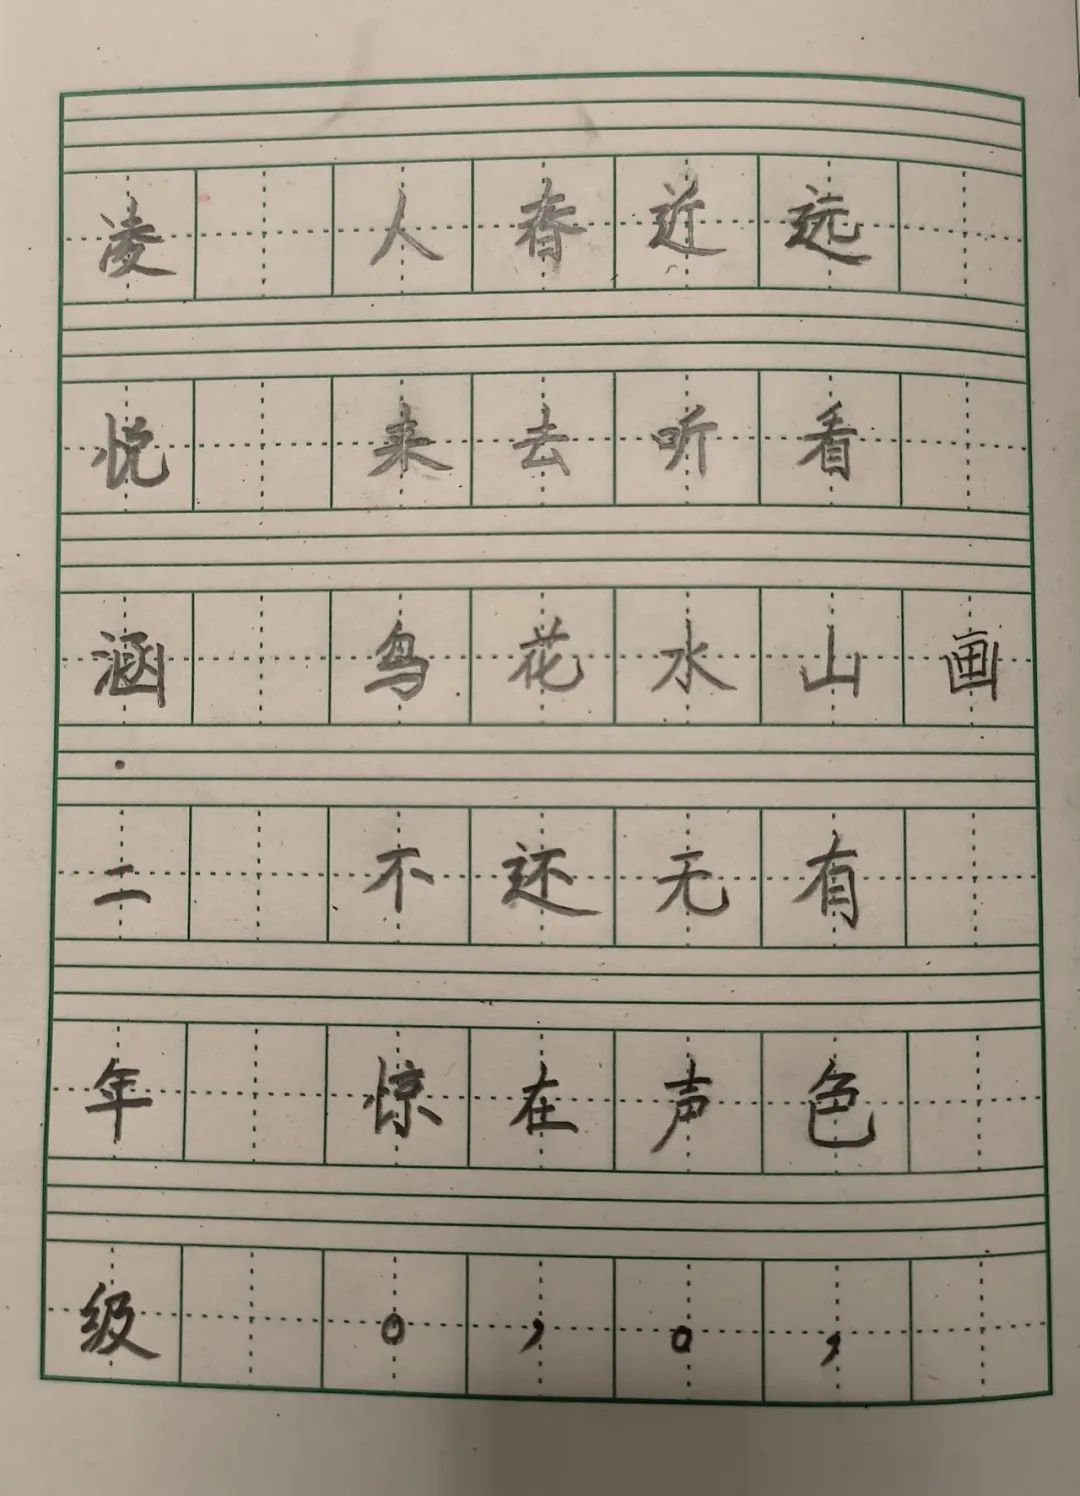 画
远看山有色，
近听水无声。
春去花还在，
人来鸟不惊。
凌悦涵二年级